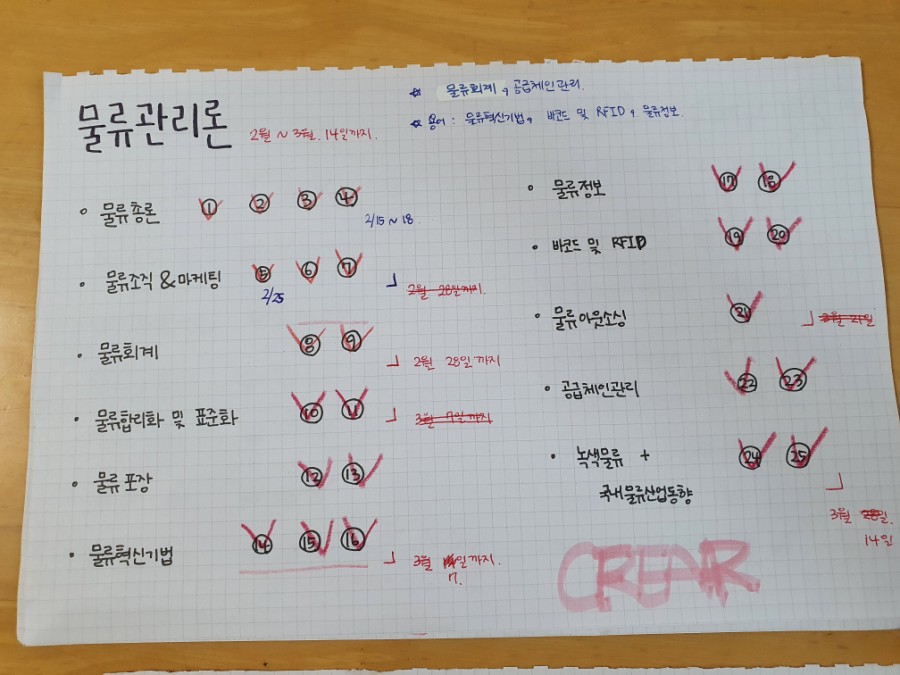 물류관리론
2월 ~ 3월. 14일까지.
☆ 물류회계, 공급체인관리.
☆ 용어 : 물류혁신기법, 바코드 및 RFID, 물류정보.
• 물류총론 ① ② ③ ④
2/15 ~ 18.
• 물류조직 & 마케팅 ⑤ ⑥ ⑦
2/25
2월 28일까지.
• 물류회계 ⑧ ⑨
2월 28일까지
• 물류합리화 및 표준화 ⑩ ⑪
3월 7일까지
• 물류포장 ⑫ ⑬
• 물류혁신기법 ⑭ ⑮ ⑯
3월 일까지.
7.
• 물류정보 ⑰ ⑱
• 바코드 및 RFID ⑲ ⑳
• 물류아웃소싱 ㉑
3월 21일
• 공급체인관리 ㉒ ㉓
• 녹색물류 + ㉔ ㉕
국내물류산업동향
3월 28일.
14일
CREAR